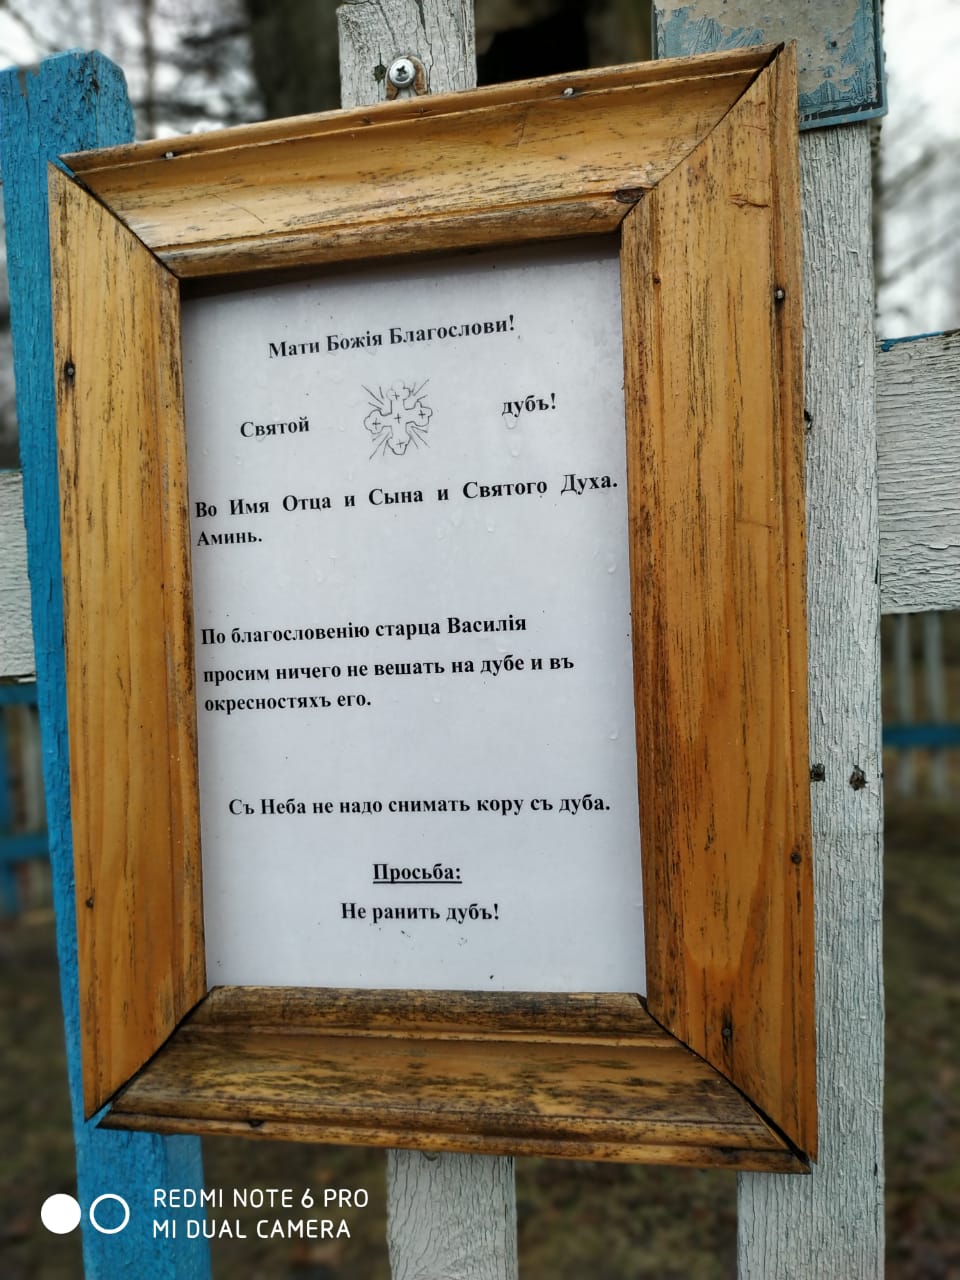 Мати Божія Благослови!
Святой дубъ!
Во Имя Отца и Сына и Святого Духа.
Аминь.
По благословенію старца Василія
просим ничего не вешать на дубе и въ
окресностяхъ его.
Съ Неба не надо снимать кору съ дуба.
Просьба:
Не ранить дубъ!
REDMI NOTE 6 PRO
MI DUAL CAMERA